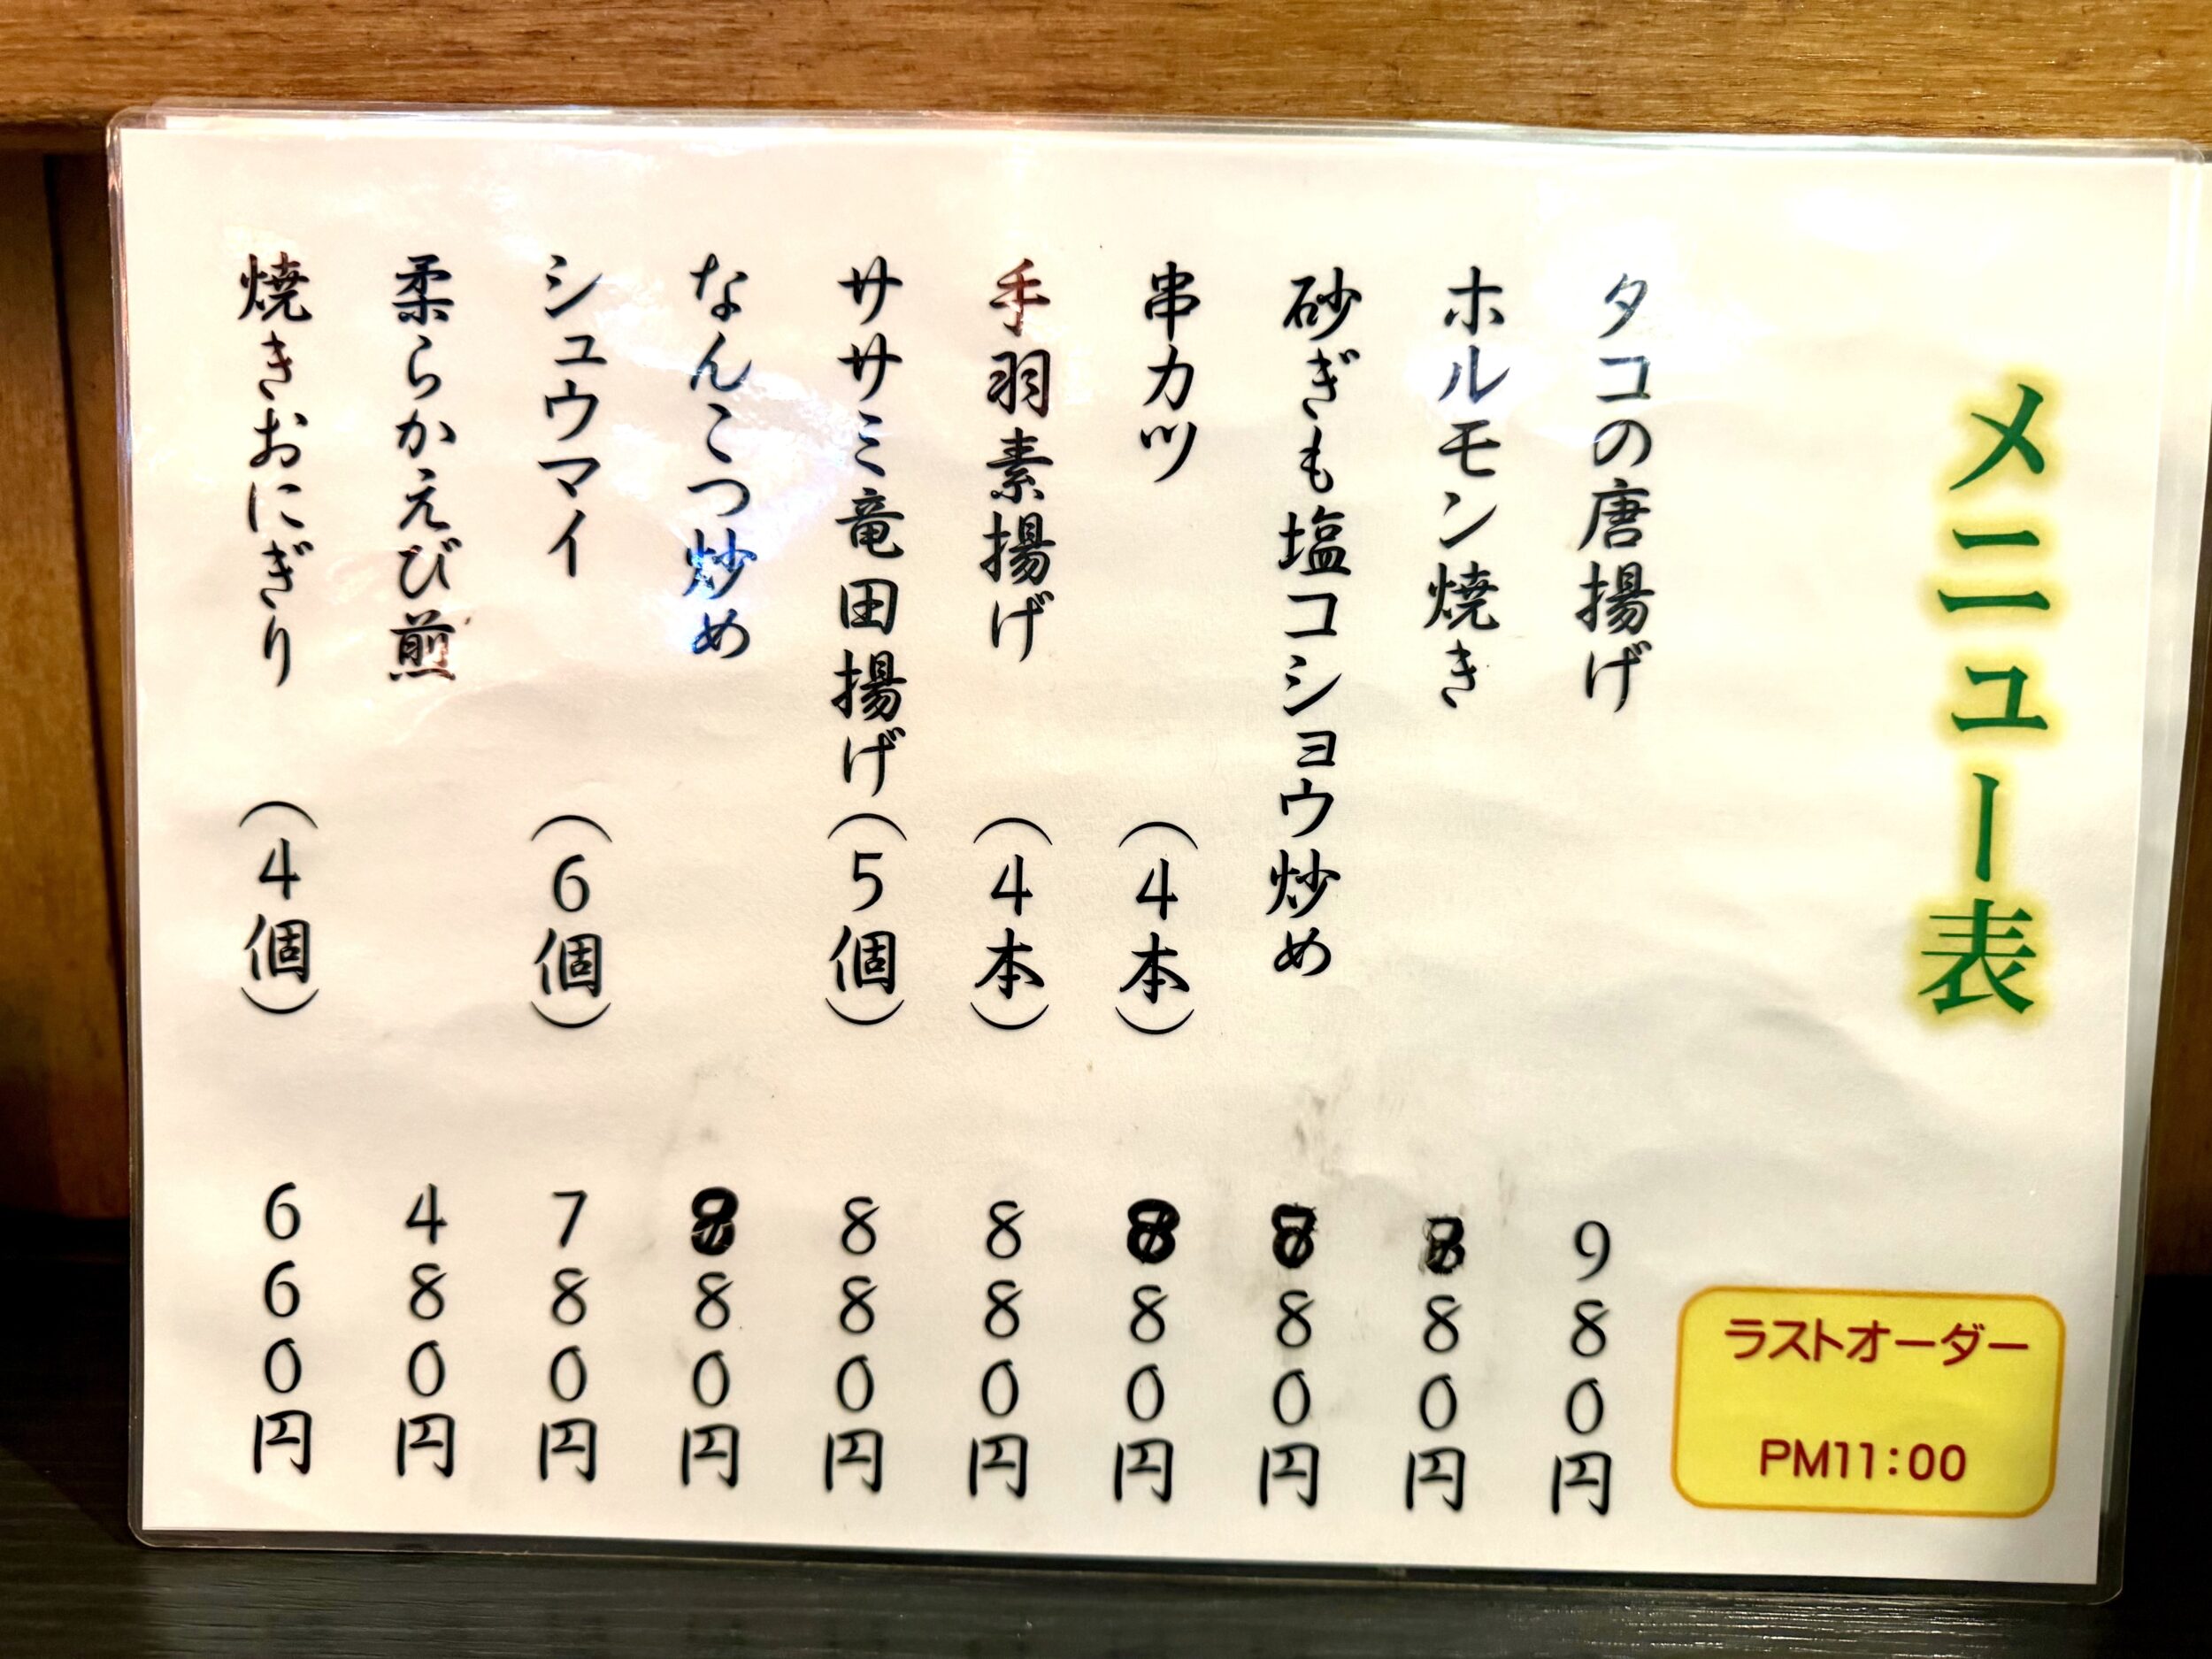 メニュー表
タコの唐揚げ 980円
ホルモン焼き 880円
砂ぎも塩コショウ炒め 880円
串カツ (4本) 880円
手羽素揚げ (4本) 880円
ササミ竜田揚げ (5個) 880円
なんこつ炒め 880円
シュウマイ (6個) 780円
柔らかえび煎 480円
焼きおにぎり (4個) 660円
ラストオーダー
PM11:00